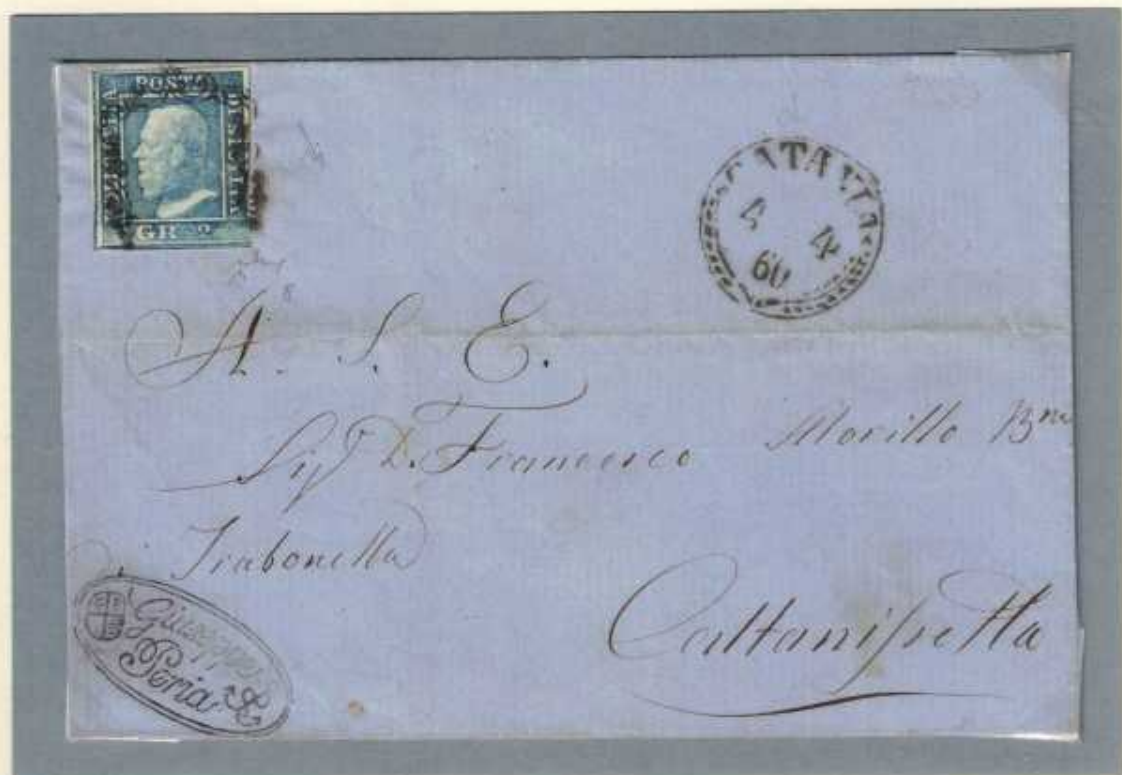 POSTA
DI SICILIA
GR 2
CATANIA
4 4
60
A. S. E.
Sig. D. Francesco Morillo Bne
di Trabonella
Caltanissetta
Giuseppe
Peria